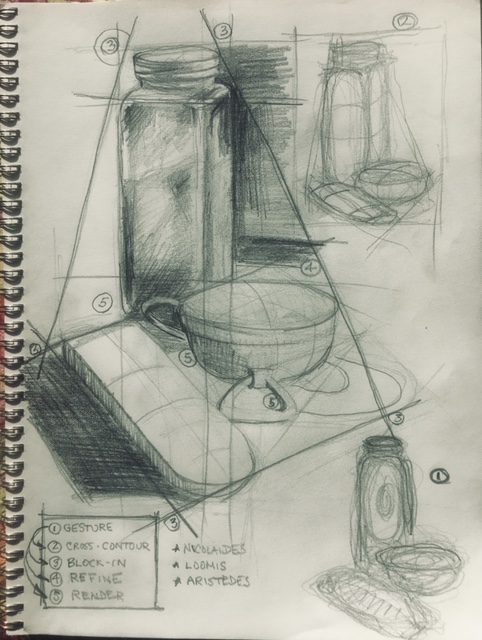 3
3
2
4
5
6
5
5
3
1
3
① GESTURE
② CROSS-CONTOUR
③ BLOCK-IN
④ REFINE
⑤ RENDER
* NICOLAIDES
* LOOMIS
* ARISTEDES